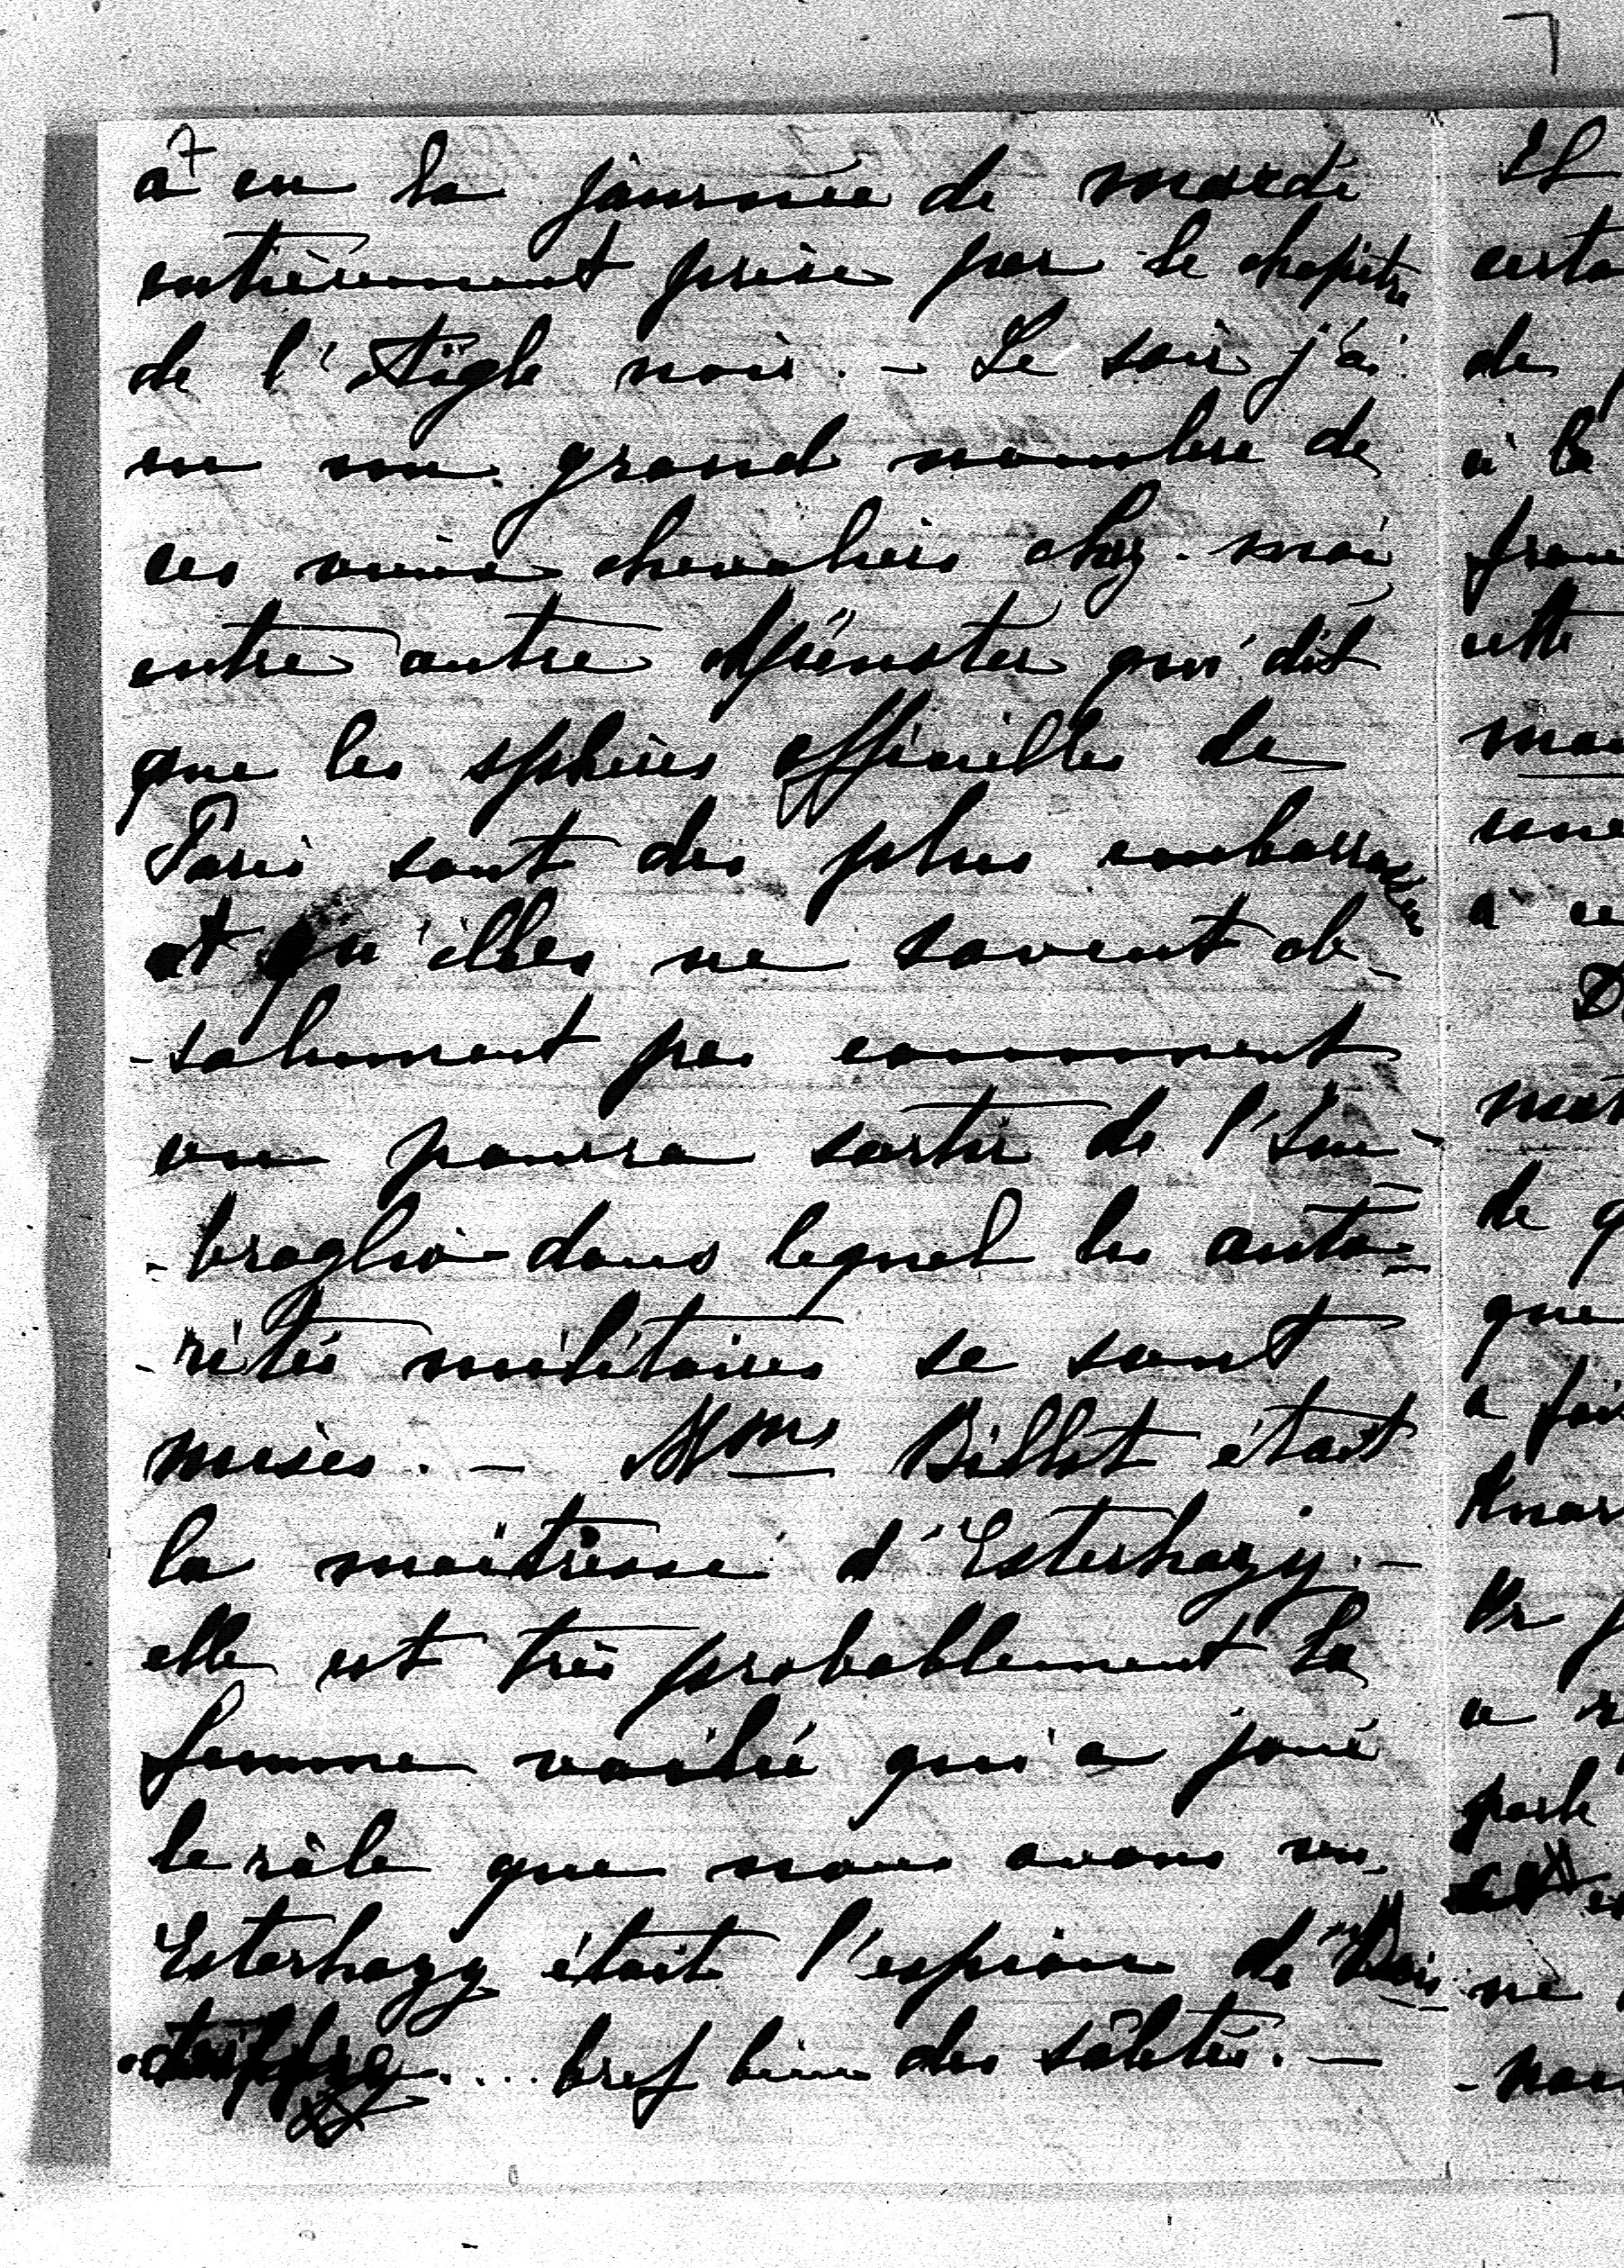 7
a eu la journée de mardi
entièrement prise par le chapitre
de l'Aigle noir. – Le soir j'ai
eu un grand nombre de
ces vieux chevaliers chez-moi
entre autre Münster qui dit
que les sphères officielles de
Paris sont des plus embarrassées
et qu'elles ne savent ab-
-solument pas comment
on pourra sortir de l'im-
-broglio dans lequel les auto-
-rités militaires se sont
mises. – Mme Billot était
la maîtresse d'Esterhazy. –
elle est très probablement la
femme voilée qui a joué
le rôle que nous avons vu,
Esterhazy était l'espion de
.... bref bien des saletés. –
Et
de
à la
cette
à ce
de q
que
a fai
Or
a
parle
ne